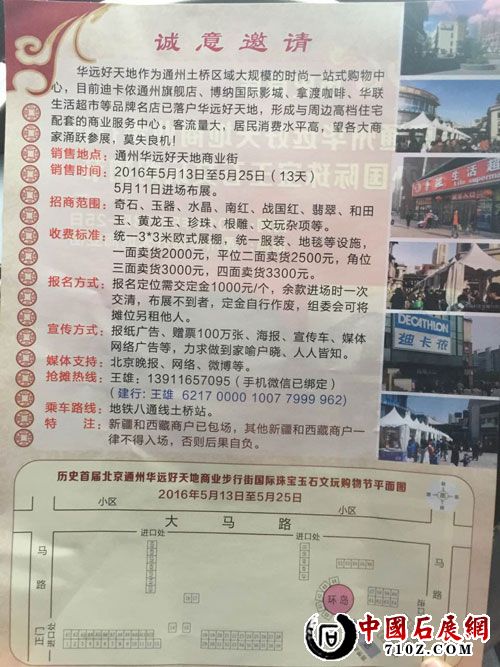 诚意邀请
华远好天地作为通州土桥区域大规模的时尚一站式购物中
心，目前迪卡侬通州旗舰店、博纳国际影城、拿渡咖啡、华联
生活超市等品牌名店已落户华远好天地，形成与周边高档住宅
配套的商业服务中心。客流量大，居民消费水平高，望各大商
家涌跃参展，莫失良机！
销售地点：通州华远好天地商业街
销售时间：2016年5月13日至5月25日（13天）
5月11日进场布展。
招商范围：奇石、玉器、水晶、南红、战国红、翡翠、和田
玉、黄龙玉、珍珠、根雕、文玩杂项等。
收费标准：统一3*3米欧式展棚，统一服装、地毯等设施，
一面卖货2000元，平位二面卖货2500元，角位
三面卖货3000元，四面卖货3300元。
报名方式：报名定位需交定金1000元/个，余款进场时一次
交清，布展不到者，定金自行作废，组委会可将
摊位另租他人。
宣传方式：报纸广告、赠票100万张、海报、宣传车、媒体
网络广告等，力求做到家喻户晓、人人皆知。
媒体支持：北京晚报、网络、微博等。
抢摊热线：王雄：13911657095（手机微信已绑定）
（建行：王雄 6217 0000 1007 7999 962）
乘车路线：地铁八通线土桥站。
特 注：新疆和西藏商户已包场，其他新疆和西藏商户一
律不得入场，否则后果自负。
生活超
DECATHLON
迪卡侬
历史首届北京通州华远好天地商业步行街国际珠宝玉石文玩购物节平面图
2016年5月13日至5月25日
小区
小区
大马路
进口处
进口处
马路
马路
正门
进口处
环岛
中國石展網
710Z.COM